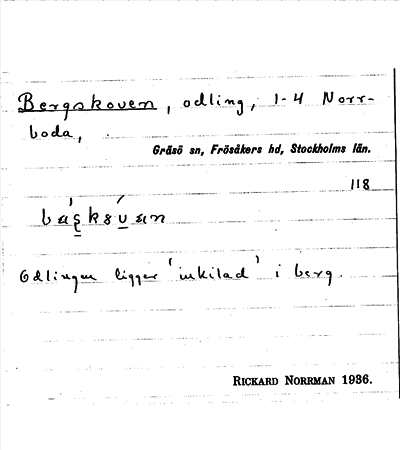 Bergskoven, odling, 1-4 Norr-
boda,
Gräsö sn, Frösåkers hd, Stockholms län.
118
Odlingen ligger 'inkilad' i berg.
RICKARD NORRMAN 1936.